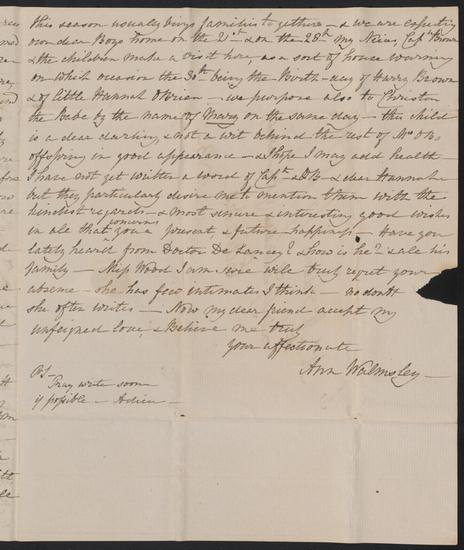 this season usually brings families together - & we are expecting
our dear Boys home on the 21st & on the 28th my Niece, Captn Brown
& the children make a visit here, as a sort of house warming
on which occasion the 30th being the Birth-day of Harry Brown
& of little Hannah OBrian - we purpose also to Christen
the Babe by the name of Mary on the same day - this child
is a dear darling & not a wit behind the rest of Mrs OBs
offspring in good appearance - & I hope I may add health -
I have not yet written a word of Captn & OB - & dear Hannah
but they particularly desire me to mention them with the
kindest regards & most sincere & interesting good wishes
in all that concerns you a present & future happiness - Have you
lately heard from Doctor De Lancey? & how is he? & all his
family - Miss Wood I am sure will truly regret your
absence - she has few intimates I think - no doubt
she often writes - Now my dear friend accept my
unfeigned love, & Believe me truly
your affectionate
Ann Walmsley -
PS -
Pray write soon
if possible - Adieu -